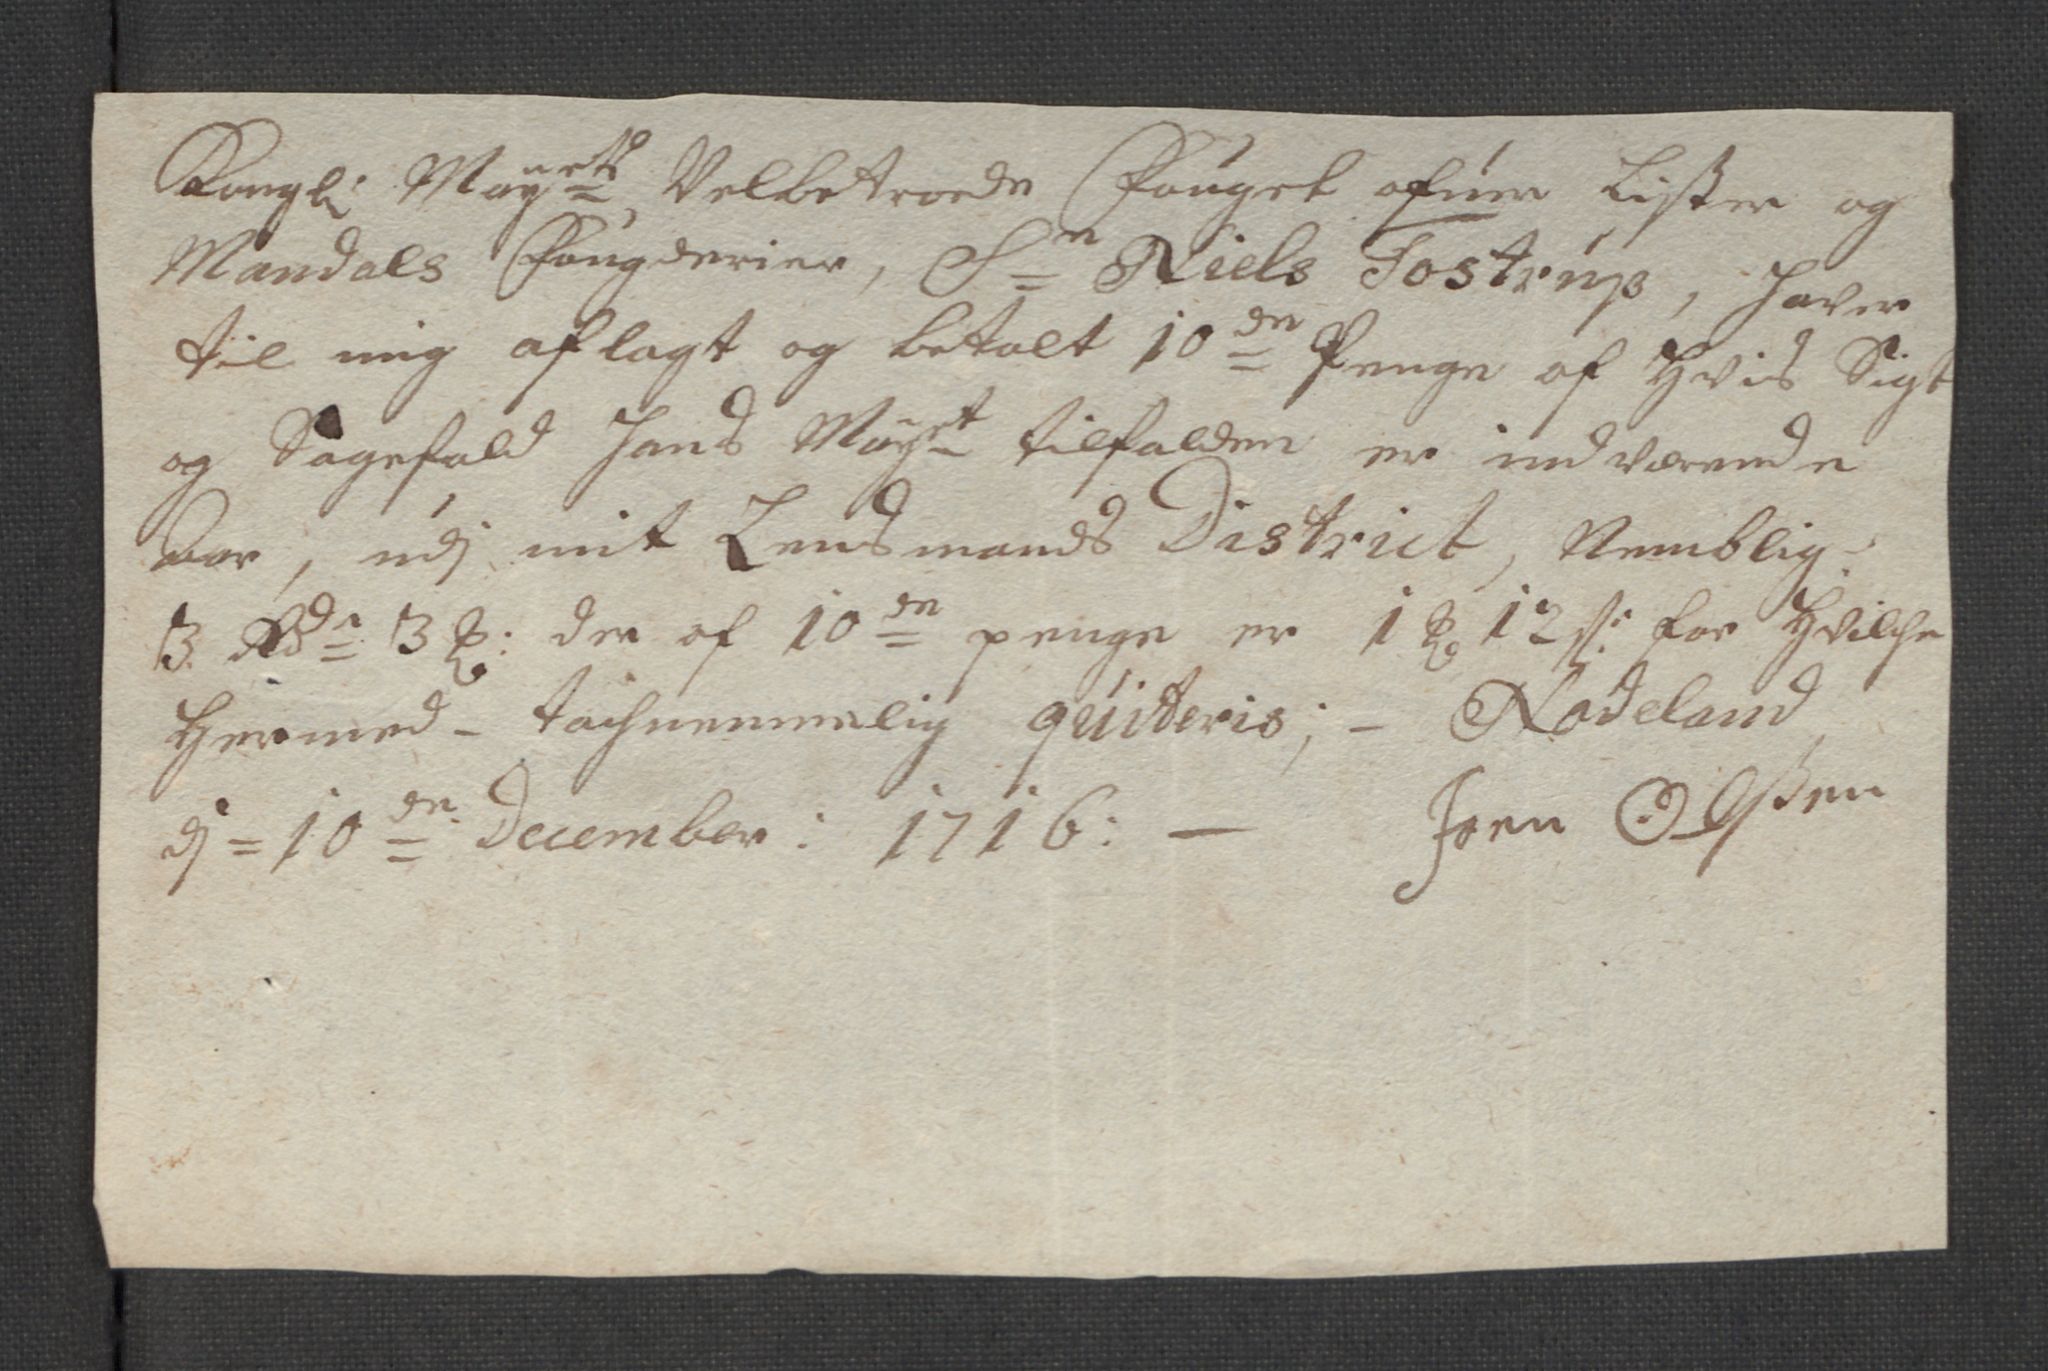 Kongl: Mayets Velbetroede Fouget ofuer Lister og
Mandals Fougderier, Sr Niels Tostrup, haver
til mig aflagt og betalt 10de Penge af hvis Sigt
og Sagefald hans Mayet tilfalden er indværende
aar, udj mit Lensmands District, Nemblig:
3 Rdr 3 ort: der af 10de penge er 1 ort 12 s: for hvilche
hermed - tachnemmelig quiteris; - Nodeland
dj = 10de December: 1716: — Joen Olsßen